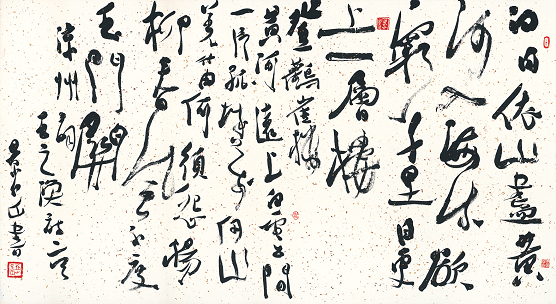 白日依山盡黄
河入海流欲
窮千里目更
上一層樓
登鸛雀樓
黄河遠上白雲間
一片孤城萬仞山
羌笛何須怨楊
柳春風不度
玉門關
涼州詞
王之渙詩
書